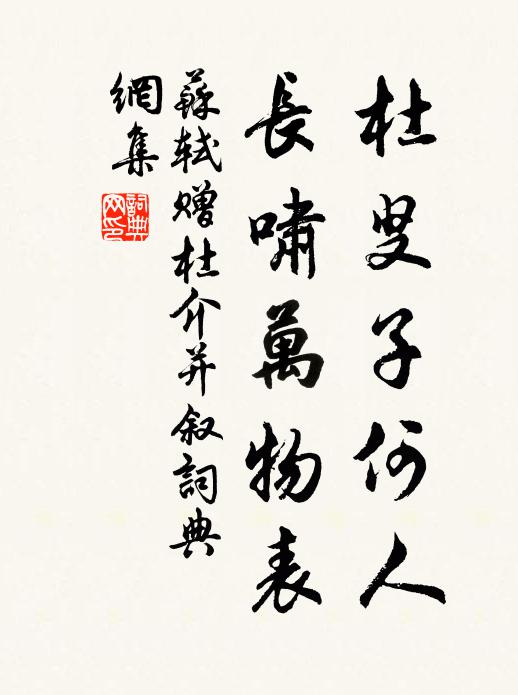 杜叟子何人
長嘯萬物表
蘇軾贈杜介并叙詞典
網集
詞典
网印